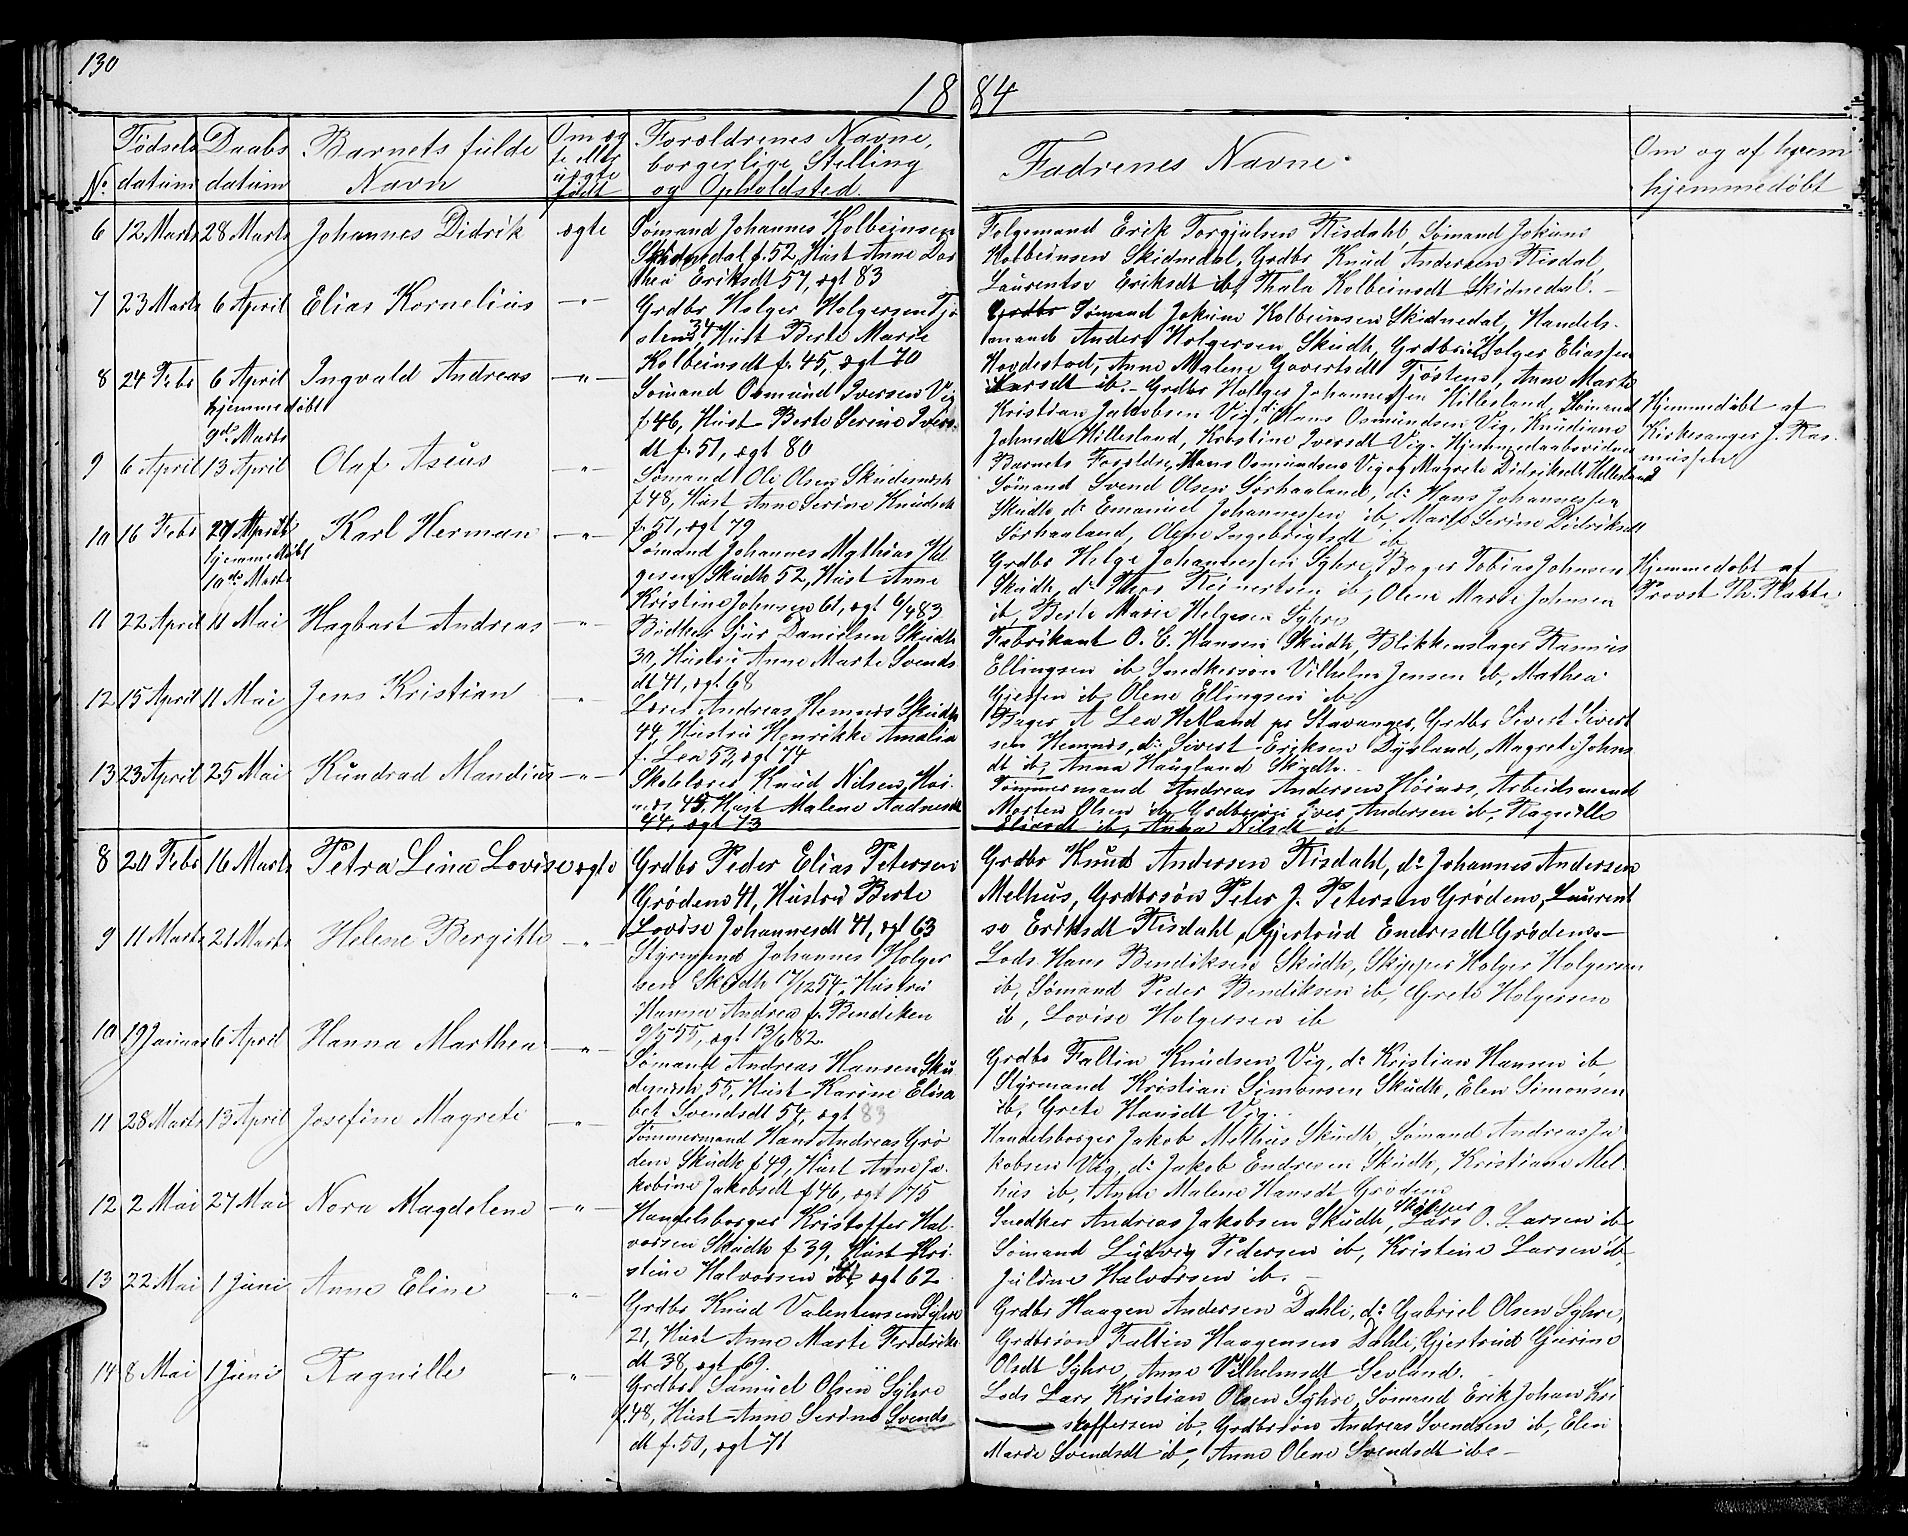 130
1884
Nº
Fødsels
datum
Daabs
datum
Barnets fulde
Navn
Om æg
te eller
uægte
født
Forældrenes Navne,
borgerlige Stilling
og Opholdsted.
Fadrenes Navne.
Om og af hvem
hjemmedøbt
6 12 Marts 28 Marts Johannes Didrik ægte
Sømand Johannes Kolbeinsen
Skidnedal f. 52, Hust Anne Dor
thea Eriksdt 57, ægt 83
Følgemand Erik Torgjulsen Risdahl, Sømand Jokum
Kolbeinsen Skidnedal, Grdbr Knud Andersen Risdal,
Laurentse Eriksdt ib, Thala Kolbeinsdt Skidnedal. –
7 23 Marts 6 April Elias Kornelius –"–
Grdbr Holger Holgersen Tjø
stem 34, Hust Berte Marie
Kolbeinsdt f. 45, ægt 70
Grdbr Sømand Jokum Kolbeinsen Skidnedal, Handels-
mand Anders Holgersen Skudh, Grdbrsøn Holger Eliassen
Hovdestad, Anne Malene Govertsdt Tjøstem, Anne Marte
Larsdt ib. –
8 24 Febr 6 April Ingvald Andreas –"–
hjemmedøbt
9de Marts
Sømand Osmund Iversen Vig
f 46, Hust Berte Serine Ivers
dt f. 51, ægt 80
Grdbr Holger Johannessen Hillesland, Sømand
Kristian Jakobsen Vig, dº Hans Osmundsen Vig, Knudiane
Johnsdt Hillesland, Krestine Iversdt Vig. Hjemmedaabsvidner
Barnets Forældre, Hans Osmundsen Vig og Magrete Didriksdt Hillesland
Hjemmedøbt af
Kirkesanger J. Ras-
mussen
9 6 April 13 April Olaf Aseus –"–
Sømand Ole Olsen Skudesnæsh
f 48, Hust Anne Serine Knudsdt
f. 51, ægt 79
Sømand Svend Olsen Sørhaaland, dº Hans Johannessen
Skudh dº Emanuel Johannessen ib, Marte Serine Didriksdt
Sørhaaland, Olene Ingebrigtsdt ib
10 16 Febr 27 April Karl Herman –"–
hjemmedøbt
10de Marts
Sømand Johannes Mathias Hel
gesen Skudh 52, Hust Anne
Kristine Johnsen 61, ægt 6/4 83
Grdbr Helge Johannessen Syhre, Bager Tobias Johnsen
Skudh, dº Thor Reinertsen ib, Olene Marie Johnsen
ib, Berte Marie Helgesen Syhre
Hjemmedøbt af
Provst Th.
11 22 April 11 Mai Hagbart Andreas –"–
Bødker Sjur Danielsen Skudh
30, Hustru Anne Marte Svends
dt 41, ægt 68
Fabrikant O. C. Hansen Skudh, Blikkenslager Rasmus
Ellingsen ib, Snedkersøn Vilhelm Jensen ib, Mathea
Gjessen ib, Olene Ellingsen ib
12 15 April 11 Mai Jens Kristian "
Lærer Andreas Hemnes Skudh
44, Hustru Henrikke Amalia
f. Lea 53, ægt 74
Bager A Lea Hetland pr Stavanger, Grdbr Sivert Sivert
sen Hemnes, dº Sivert Eriksen Dyrland, Magrete Johns
dt ib, Anna Haugland Skudh.
13 23 April 25 Mai Kunrad Mandius –"–
Skolelærer Knud Nilsen Høi-
næs 45, Hust Malene Aadnesdt
44, ægt 73
Tømmermand Andreas Andersen Høinæs, Arbeidsmand
Morten Olsen ib, Grdbrsøn Iver Andersen ib, Ragnille
Eliasdt ib, Anna Nilsdt ib
8 20 Febr 16 Marts Petra Lina Lovise ægte
Grdbr Peder Elias Petersen
Grødem 41, Hustru Berte
Lovise Johannesdt 41, ægt 63
Grdbr Knud Andersen Risdahl, dº Johannes Andersen
Melhus, Grdbrsøn Peter J. Petersen Grødem, Laurent
se Eriksdt Risdahl, Gjertrud Endresdt Grødem. –
9 11 Marts 21 Marts Helene Bergitte –"–
Styrmand Johannes Holger
sen Skudh 17/12 54, Hustru
Hanna Andrea f. Bendiksen
9/5 55, ægt 13/6 82.
Lods Hans Bendiksen Skudh, Skipper Holger Holgersen
ib, Sømand Peder Bendiksen ib, Grete Holgersen
ib, Lovise Holgersen ib
10 19 Januar 6 April Hanna Marthea –"–
Sømand Andreas Hansen Sku
desnæsh, 55, Hust Karine Elisa
bet Svendsdt 54, ægt 83
Grdbr Faltin Knudsen Vig, dº Kristian Hansen ib,
Styrmand Kristian Simonsen Skudh, Elen Simonsen
ib, Grete Hansdt Vig.
11 28 Marts 13 April Josefine Magrete –"–
Tømmermand Hans Andreas Grø
dem Skudh f 49, Hust Anne Ja-
kobine Jakobsdt f 46, ægt 75
Handelsborger Jakob Melhus Skudh, Sømand Andreas Ja
kobsen Vig, dº Jakob Endresen Skudh, Kristiane Mel-
hus ib, Anne Malene Hansdt Grødem
12 2 Mai 27 Mai Nora Magdelene –"–
Handelsborger Kristoffer Hal-
vorsen Skudh f 39, Hust Kri-
stine Halvorsen ægt 62
Snedker Andreas Jakobsen Skudh, Skipper Lars O. Larsen ib
Sømand Ludvig Pedersen ib, Kristine Larsen ib,
Juldne Halvorsen ib. –
13 22 Mai 1 Juni Anne Eline –"–
Grdbr Knud Valentinsen Syhre
21, Hust Anne Marte Fredriks
dt 38, ægt 69.
Grdbr Haagen Andersen Dahle, dº Gabriel Olsen Syhre,
Grdbrsøn Faltin Haagensen Dahle, Gjertrud Gurine
Olsdt Syhre, Anne Vilhelmsdt Sevland.
14 8 Mai 1 Juni Ragnille –"–
Grdbr Samuel Olsen Syhre
f. 48, Hust Anne Serine Svends
dt f. 50, ægt 71
Lods Lars Kristian Olsen Syhre, Sømand Erik Johan Kri
stoffersen ib, Grdbrsøn Andreas Svendsen ib, Elen
Marie Svendsdt ib, Anne Olene Svendsdt ib –